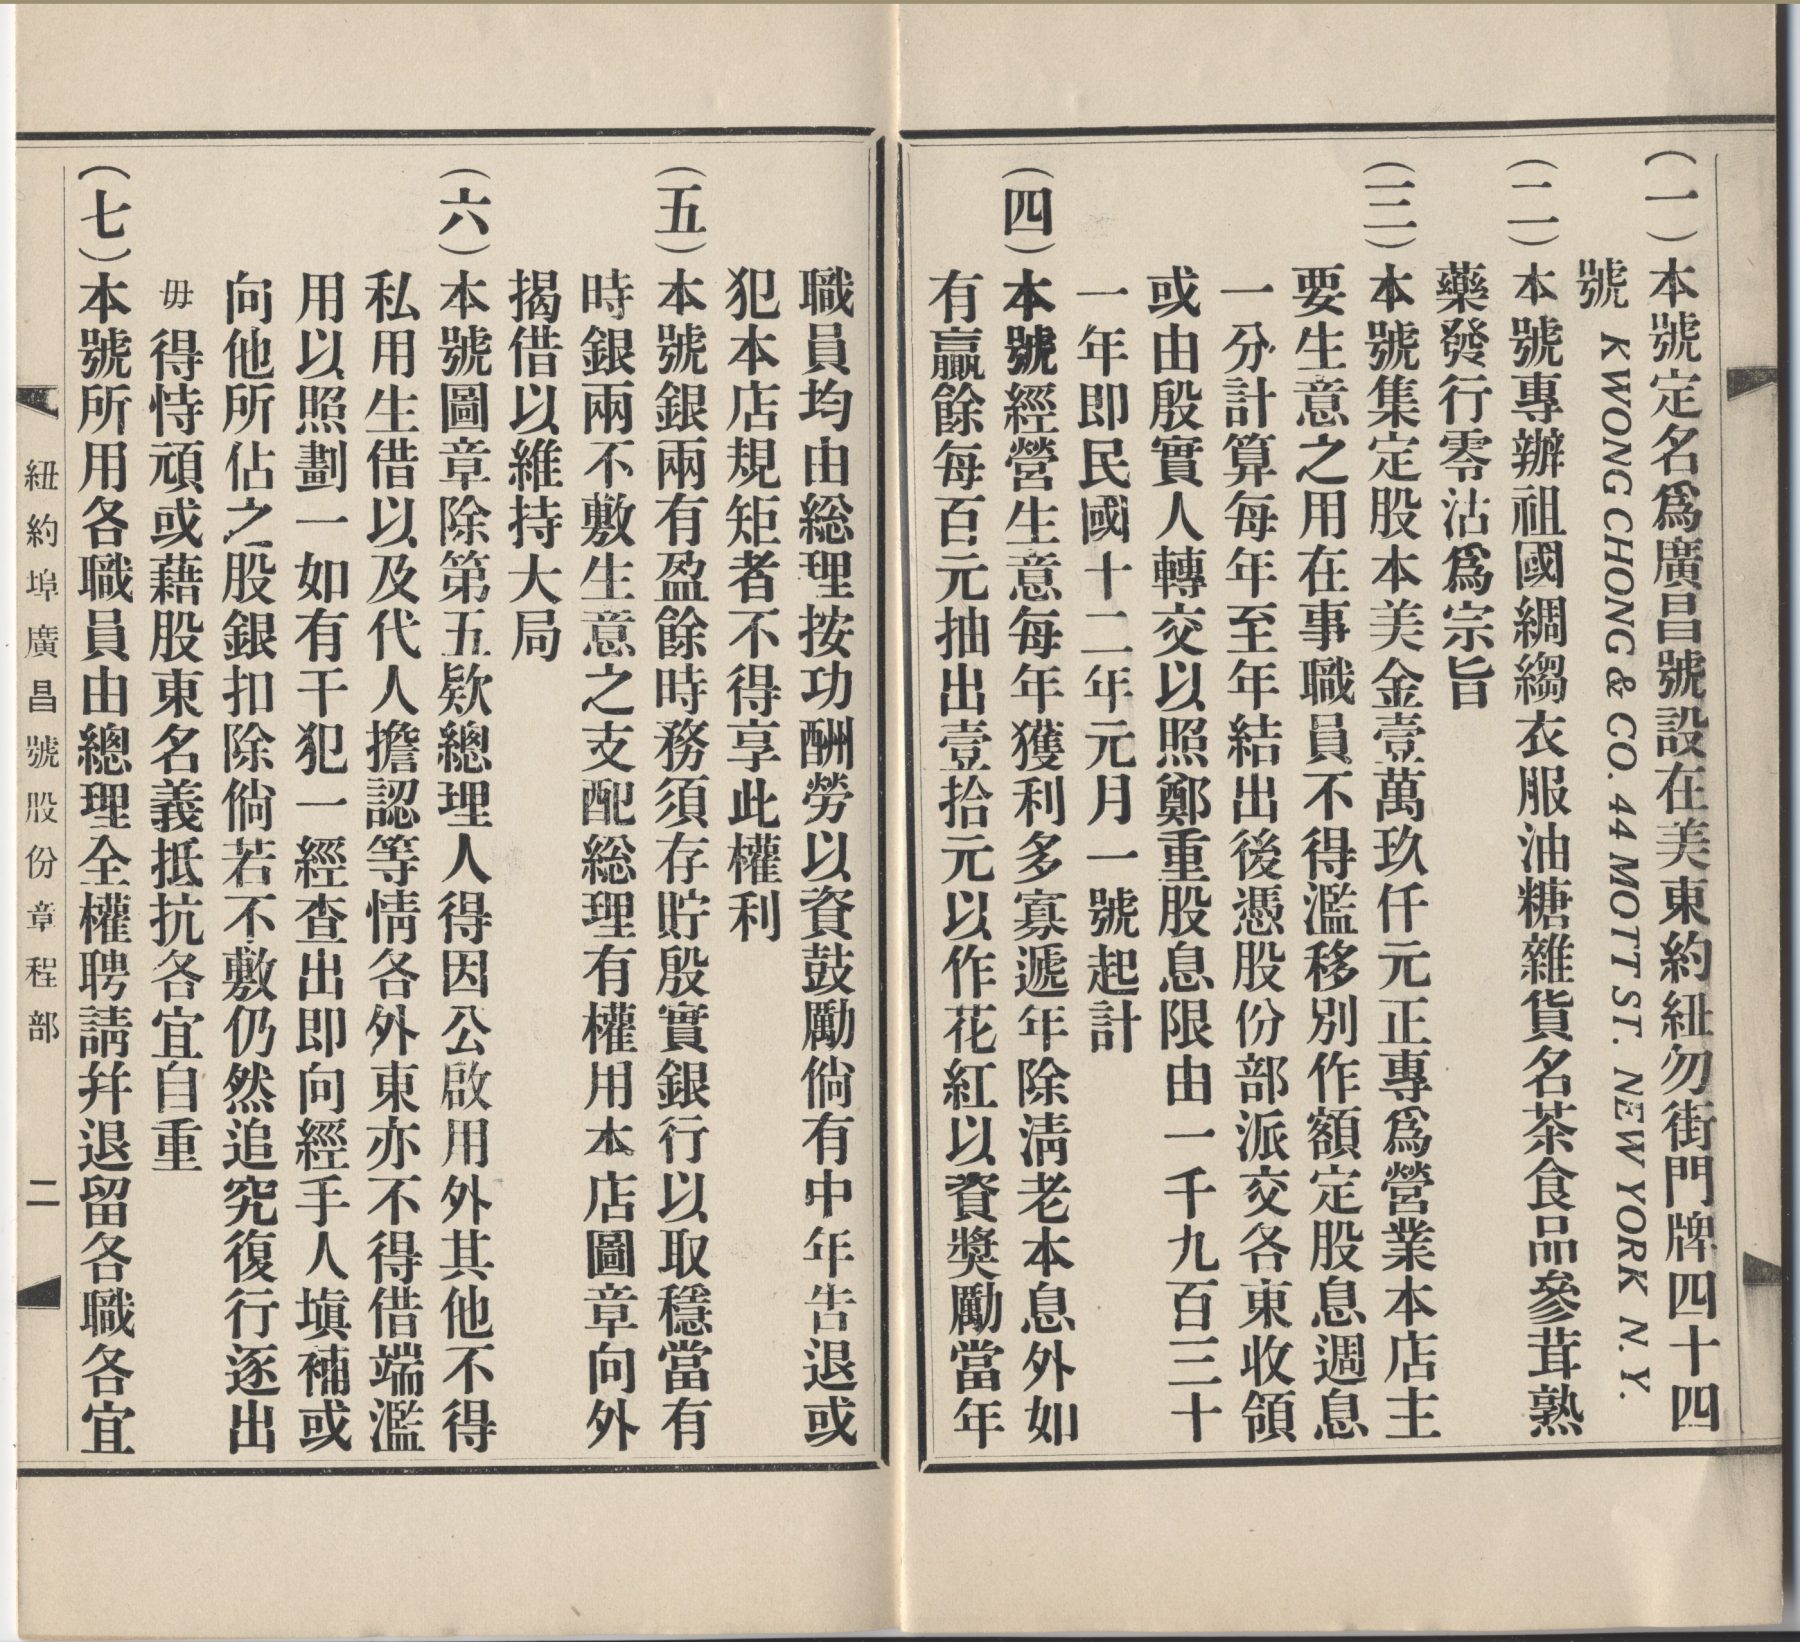 (一)本號定名爲廣昌號設在美東約紐勿街門牌四十四
號 KWONG CHONG & CO. 44 MOTT ST. NEW YORK N. Y.
(二)本號專辦祖國綢縐衣服油糖雜貨名茶食品參茸熟
藥發行零沽爲宗旨
(三)本號集定股本美金壹萬玖仟元正專爲營業本店主
要生意之用在事職員不得濫移別作額定股息週息
一分計算每年至年結出後憑股份部派交各東收領
或由殷實人轉交以照鄭重股息限由一千九百三十
一年即民國十二年元月一號起計
(四)本號經營生意每年獲利多寡遞年除淸老本息外如
有贏餘每百元抽出壹拾元以作花紅以資獎勵當年
職員均由総理按功酬勞以資鼓勵倘有中年告退或
犯本店規矩者不得享此權利
(五)本號銀兩有盈餘時務須存貯殷實銀行以取穩當有
時銀兩不敷生意之支配総理有權用本店圖章向外
揭借以維持大局
(六)本號圖章除第五欵總理人得因公啟用外其他不得
私用生借以及代人擔認等情各外東亦不得借端濫
用以照劃一如有干犯一經查出即向經手人塡補或
向他所佔之股銀扣除倘若不敷仍然追究復行逐出
毋得恃頑或藉股東名義抵抗各宜自重
(七)本號所用各職員由總理全權聘請幷退留各職各宜
紐約埠廣昌號股份章程部 二